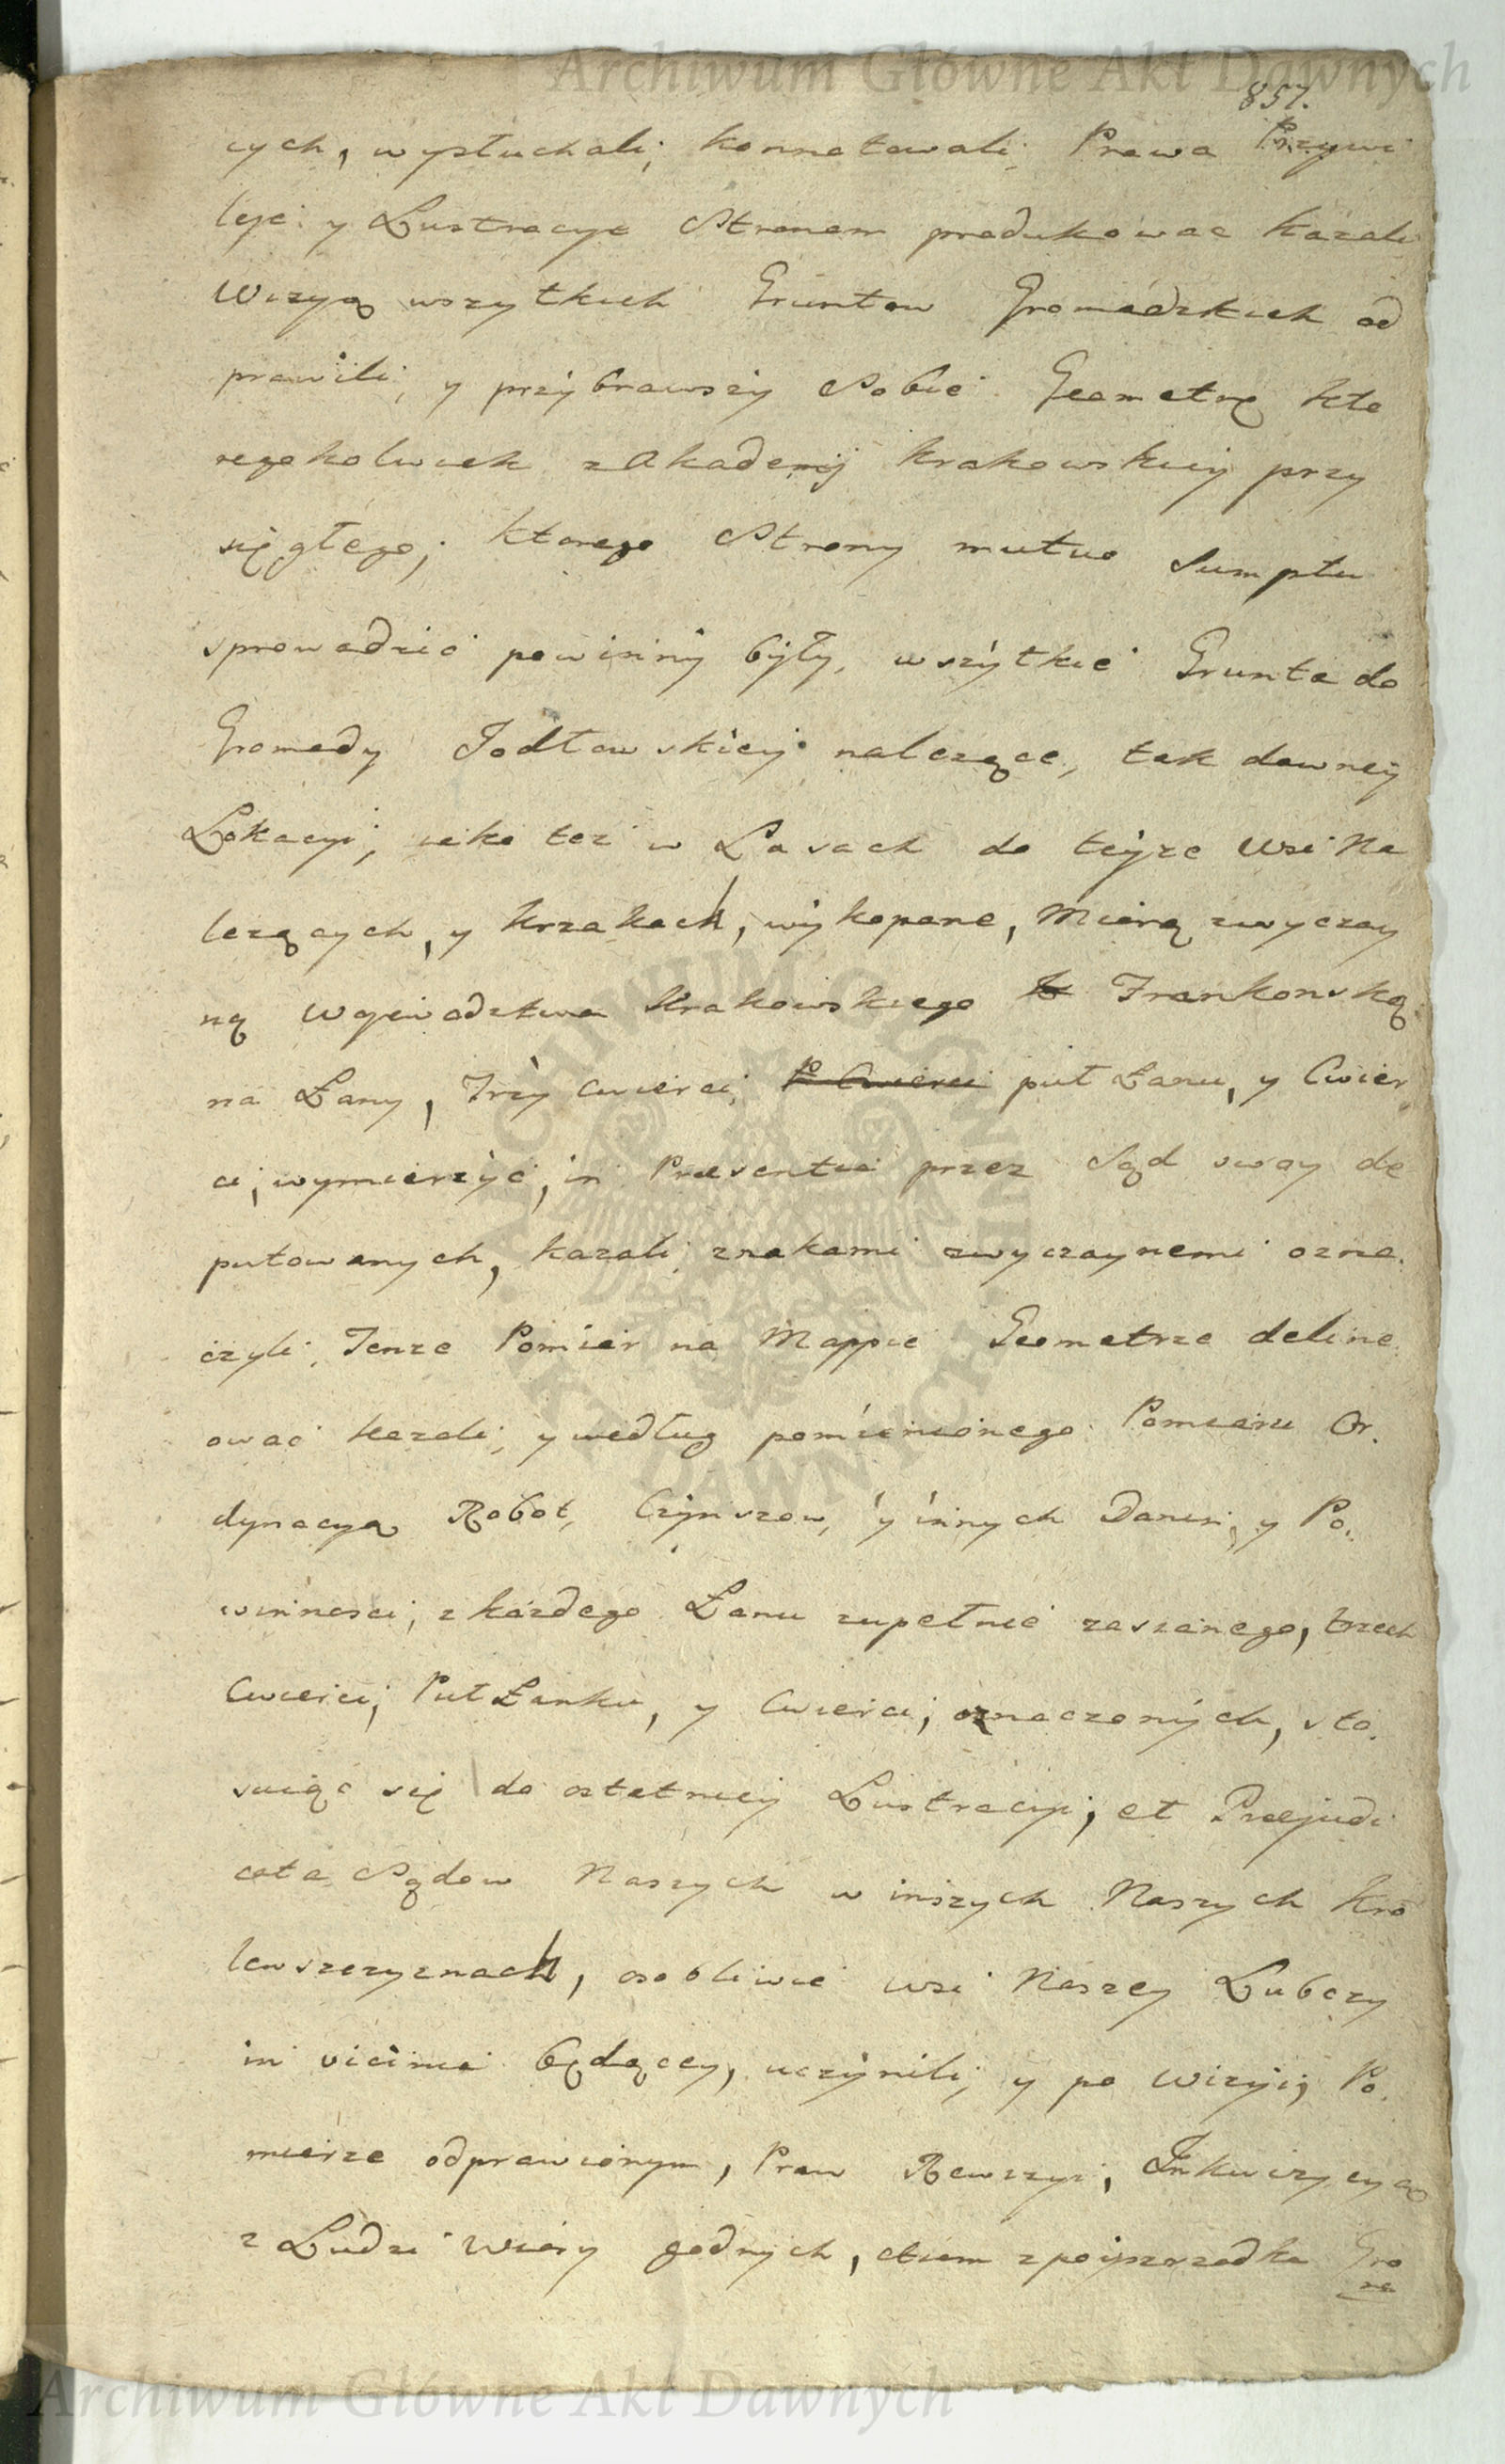 Archiwum Główne Akt Dawnych
857.
cych, wysłuchali, konnotowali, Prawa Przywi
leje y Lustracye Stronom produkowac kazali
Wizyą wszytkich Gruntow Gromadzkich od
prawili, y przybrawszy Sobie Geometrę kto
regokolwiek z Akademij Krakowskiey przy
sięgłego, ktorego Strony mutuo Sumptu
sprowadzić powinny były, wszytkie Grunta do
Gromady Jodłowskiey nalezące, tak dawney
Lokacyi, iako tez w Lasach do teyze Wsi Na
lezących, y krzakach, wykopane, Miarą zwyczay
ną Wojewodztwa Krakowskiego Frankonską
na Łany, Trzy Cwierci, puł Łanu, y Cwier
ci, wymierzyć, in Præsentia przez Sąd swoy de
putowanych, kazali, znakami zwyczaynemi ozna
czyli, Tenze Pomiar na Mappie Geometrze deline
ować kazali, y według pomienionego Pomiaru Or
dynacyą Robot, Czynszow, y innych Danin, y Po
winnosci, z kazdego Łanu zupełnie zasianego, trzech
Cwierci, Puł Łanku, y Cwierci, oznaczonych, sto
suiąc się do ostatniey Lustracyi, et Præjudi
cata Sądow Naszych w inszych Naszych Kro
lewszczyznach, osobliwie wsi Naszey Lubczy
in vicinia będącey, uczynili, y po Wizyi, Po
mierze odprawionym, Praw Rewizyi, Inkwizycyą
z Ludzi Wiary godnych, etiam z poyszrzodka Gro
Archiwum Główne Akt Dawnych